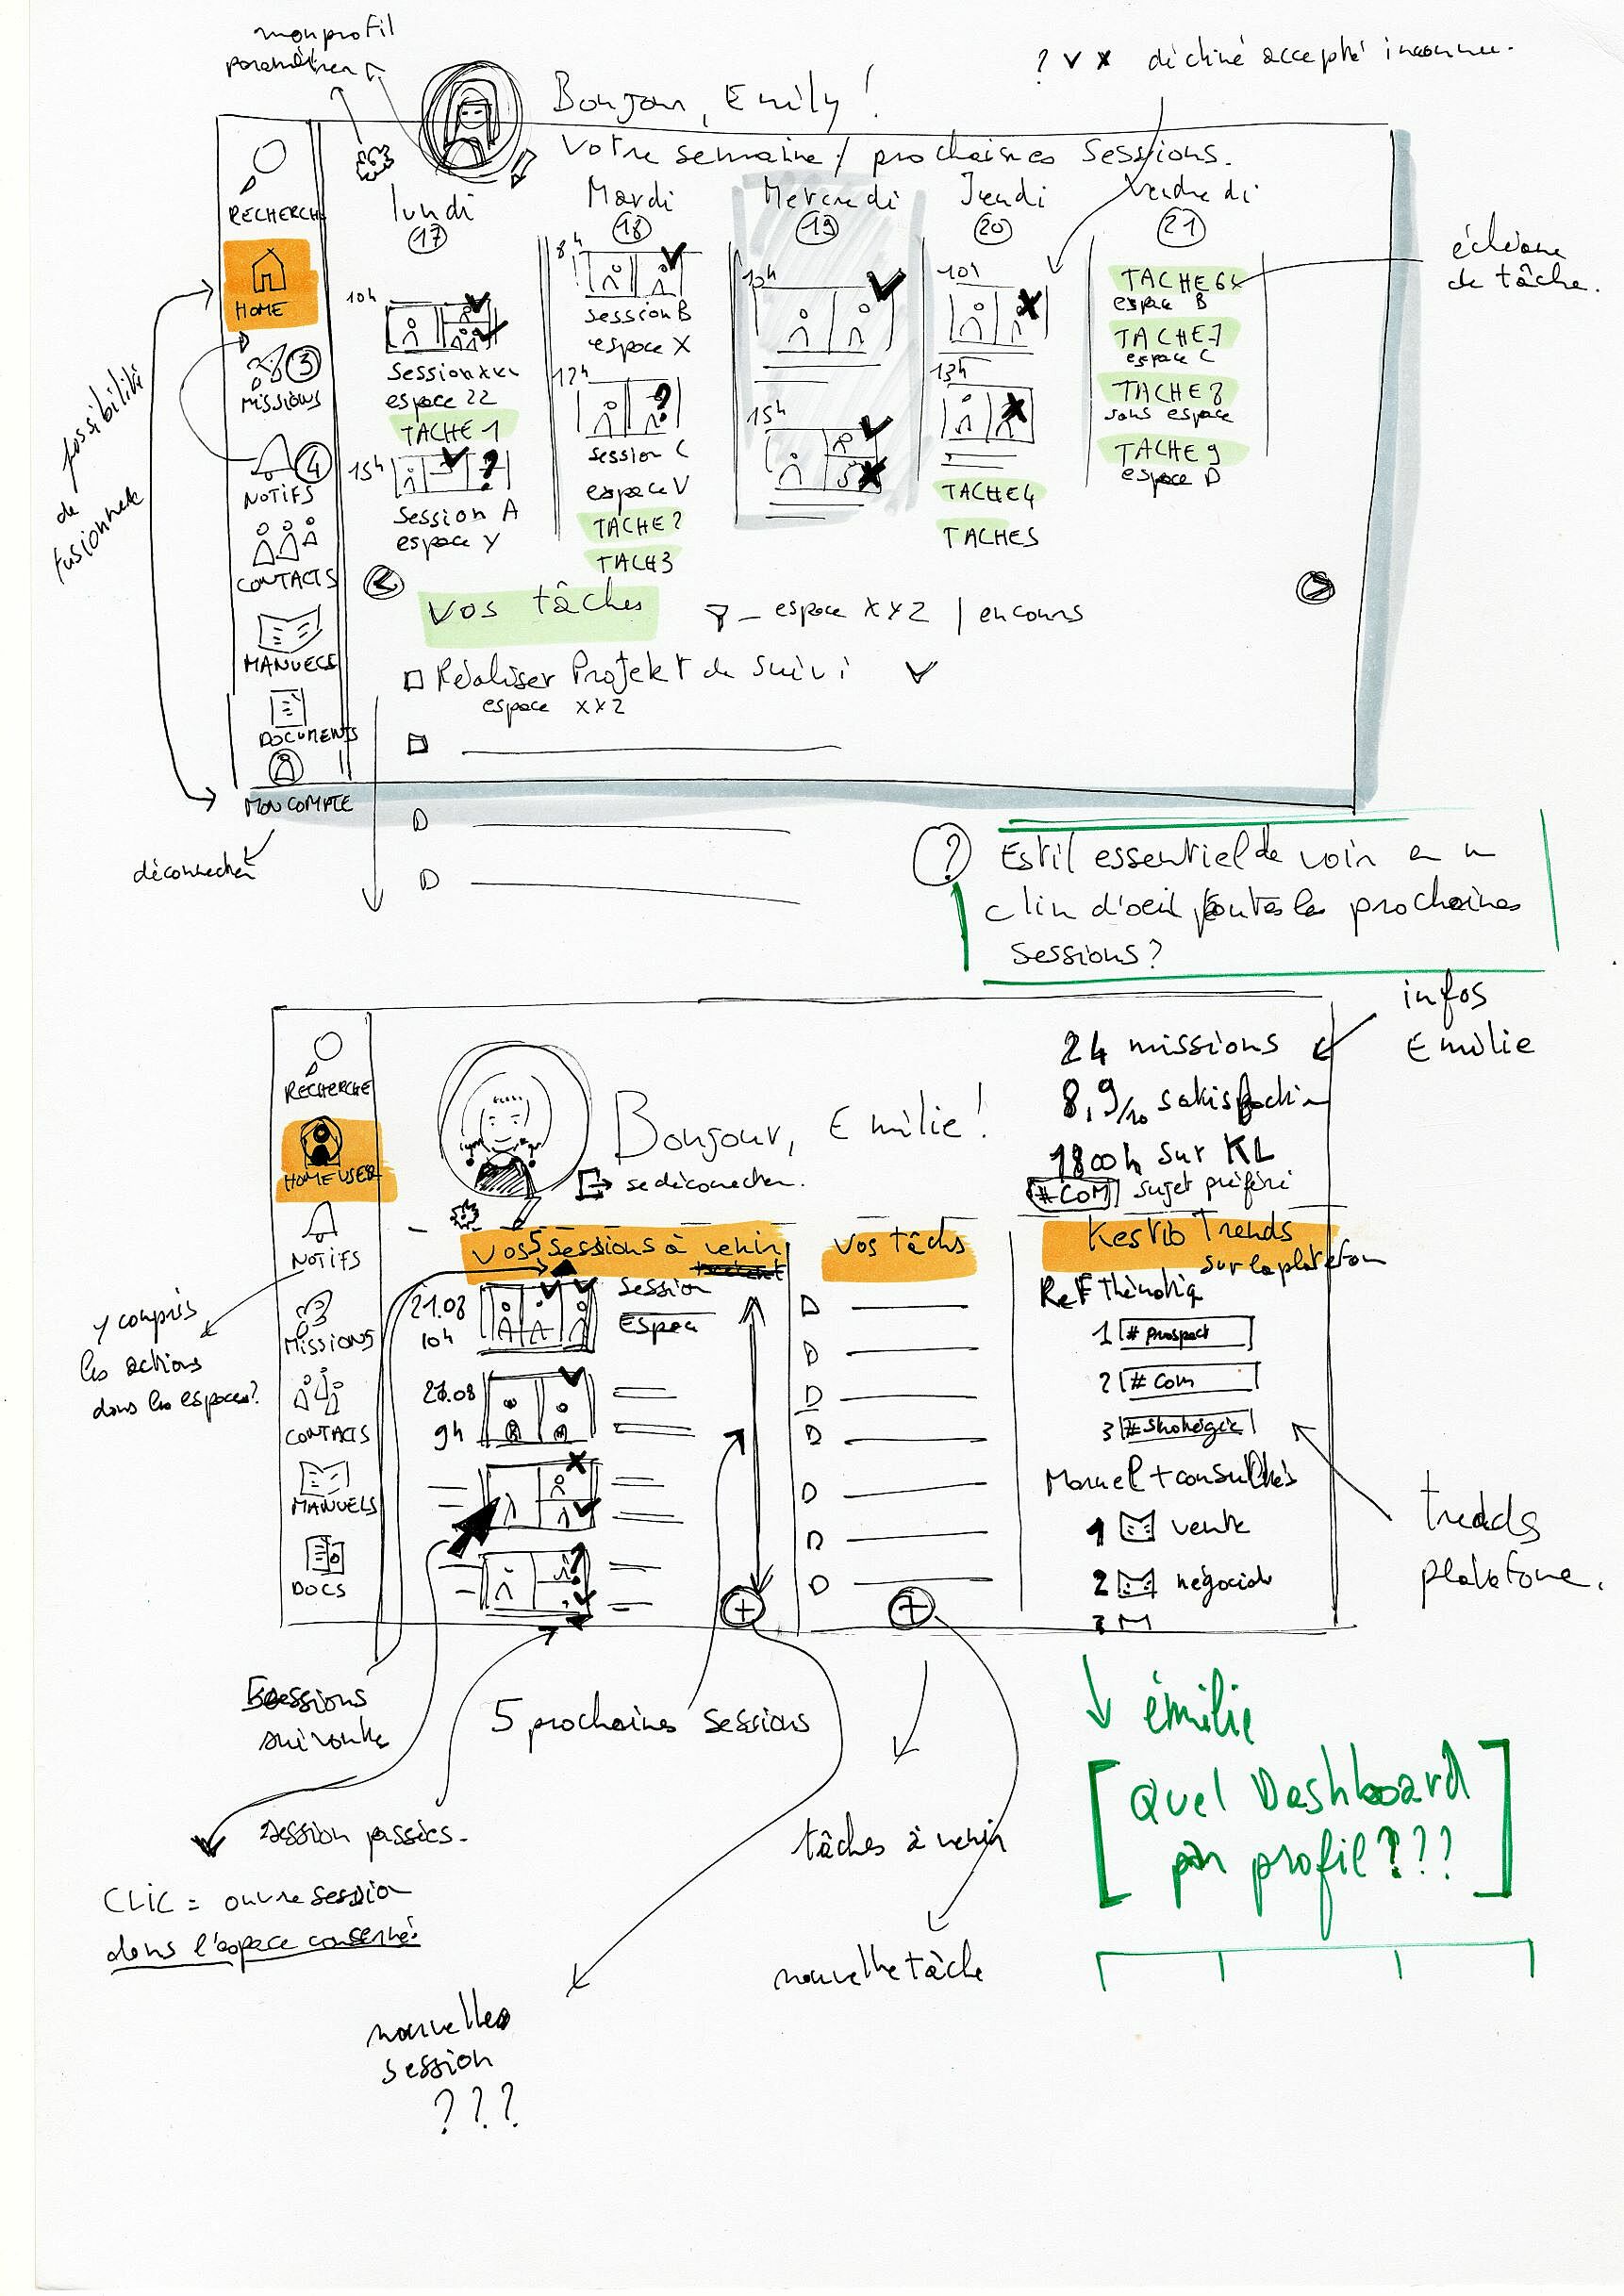 mon profil
? v x décliné accepté inconnu.
Bonjour, Emily!
Votre semaine / prochaines sessions.
RECHERCHE
HOME
3
MISSIONS
4
NOTIFS
CONTACTS
MANUELS
DOCUMENTS
MON COMPTE
déconnecter
possibilité
de
fusionner
lundi
17
10h
espace 22
TACHE 1
15h
?
Session A
espace Y
Mardi
18
8h
session B
espace X
12h
?
session C
espace V
TACHE 2
TACH 3
Mercredi
19
15h
Jeudi
20
10h
13h
TACHE 4
TACHE 5
Vendredi
21
TACHE 6
espace B
TACHE 7
espace C
TACHE 8
sans espace
TACHE 9
espace D
de tâche.
Vos tâches
espace XYZ | en cours
Réaliser Projekt de suivi
espace XYZ
? Est il essentiel de voir en un
clin d'oeil toutes les prochaines
sessions?
infos
Emilie
RECHERCHE
HOME USER
NOTIFS
MISSIONS
CONTACTS
MANUELS
DOCS
Bonjour, Emilie!
se déconnecter.
24 missions
8,9/10 satisfaction
1800h sur KL
#COM sujet préféré
Vos 5 sessions à venir
21.08
10h
Session
Espace
9h
?
Vos tâches
Trends
sur la plateform
1 # prospect
2 # com
Manuel + consultés
1 vente
2
3
y compris
les actions
dans les espaces?
trends
plateforme.
5 sessions
suivantes
5 prochaines sessions
session passées.
CLIC = ouvre session
dans l'espace concerné
tâches à venir
nouvelle tâche
nouvelles
session
???
émilie
[Quel Dashboard
par profil???]